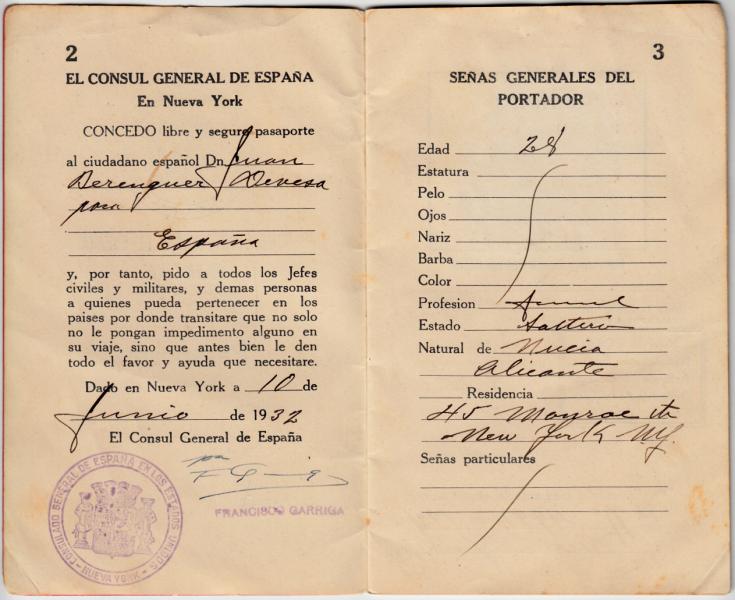 2
EL CONSUL GENERAL DE ESPAÑA
En Nueva York
CONCEDO libre y seguro pasaporte
al ciudadano español Dn Juan
Berenguer Devesa
para
España
y, por tanto, pido a todos los Jefes
civiles y militares, y demas personas
a quienes pueda pertenecer en los
paises por donde transitare que no solo
no le pongan impedimento alguno en
su viaje, sino que antes bien le den
todo el favor y ayuda que necesitare.
Dado en Nueva York a 10 de
Junio de 1932
El Consul General de España
FRANCISCO GARRIGA
CONSULADO GENERAL DE ESPAÑA EN LOS ESTADOS UNIDOS
- NUEVA YORK -
3
SEÑAS GENERALES DEL
PORTADOR
Edad 28
Estatura
Pelo
Ojos
Nariz
Barba
Color
Profesion
Estado Soltero
Natural de Nucia
Alicante
Residencia
45 Monroe St
New York NY.
Señas particulares